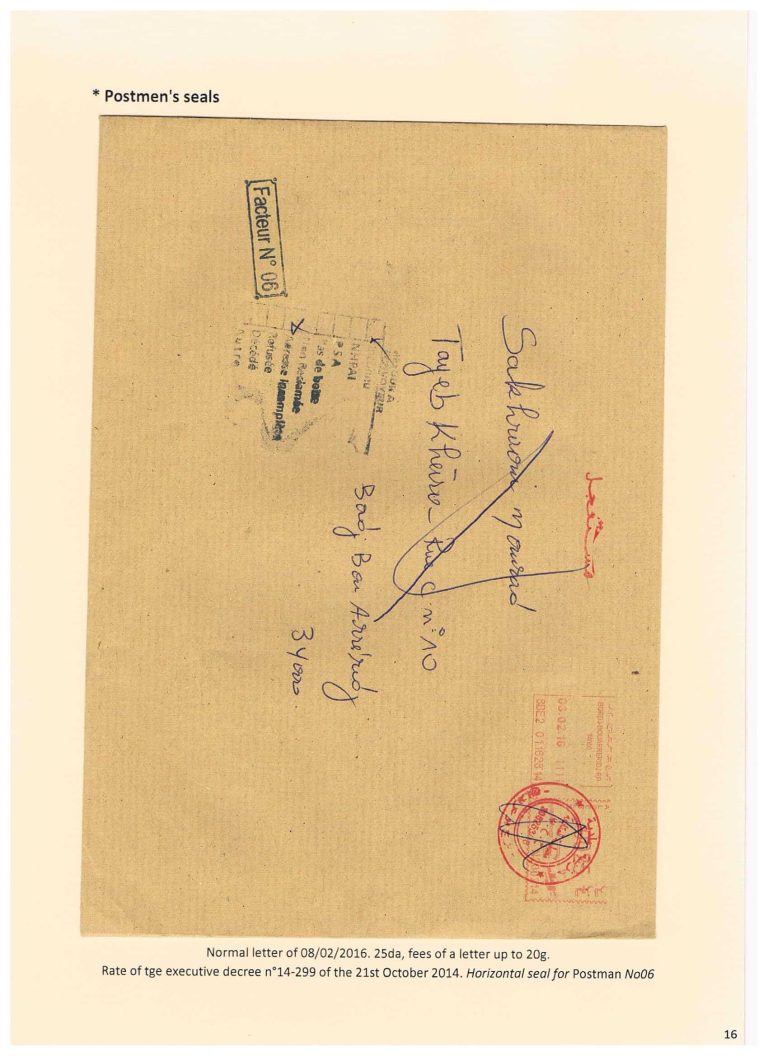 * Postmen's seals
Facteur N° 06
INHPAI
PSA
Pas de boite
Non Reclamée
Adresse Incomplète
Refusée
Décédé
Autre
Sakhraoui Mourad
Tayeb Kheire Rue C n°10
Bordj Bou Arreridj
34000
03-02-16 1111
SDE2 011628
Normal letter of 08/02/2016. 25da, fees of a letter up to 20g.
Rate of tge executive decree n°14-299 of the 21st October 2014. Horizontal seal for Postman No06
16